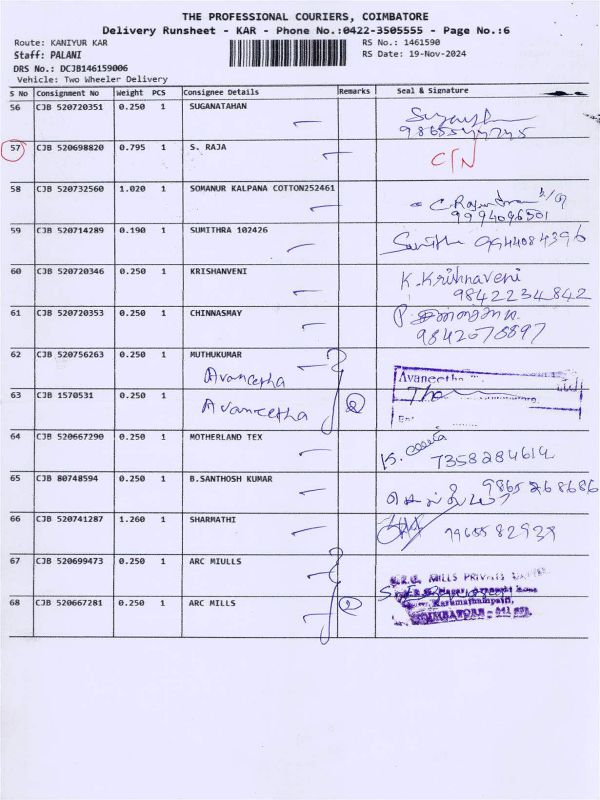 THE PROFESSIONAL COURIERS, COIMBATORE
Delivery Runsheet - KAR - Phone No.:0422-3505555 - Page No.:6
Route: KANIYUR KAR RS No.: 1461590
Staff: PALANI RS Date: 19-Nov-2024
DRS No.: DCJB146159006
Vehicle: Two Wheeler Delivery
S No Consignment No Weight PCS Consignee Details Remarks Seal & Signature
56 CJB 520720351 0.250 1 SUGANATAHAN
57 CJB 520698820 0.795 1 S. RAJA
C/N
58 CJB 520732560 1.020 1 SOMANUR KALPANA COTTON252461
9994096501
59 CJB 520714289 0.190 1 SUMITHRA 102426
9944084396
60 CJB 520720346 0.250 1 KRISHANVENI
K. Krishnaveni
9842234842
61 CJB 520720353 0.250 1 CHINNASMAY
9842078897
62 CJB 520756263 0.250 1 MUTHUKUMAR
Avaneetha
Avaneetha
63 CJB 1570531 0.250 1 Avaneetha 2
64 CJB 520667290 0.250 1 MOTHERLAND TEX
7358284614
65 CJB 80748594 0.250 1 B.SANTHOSH KUMAR
9865268686
66 CJB 520741287 1.260 1 SHARMATHI
67 CJB 520699473 0.250 1 ARC MIULLS
MILLS PRIVATE
68 CJB 520667281 0.250 1 ARC MILLS 2
Karumathampatti,
COIMBATORE - 641